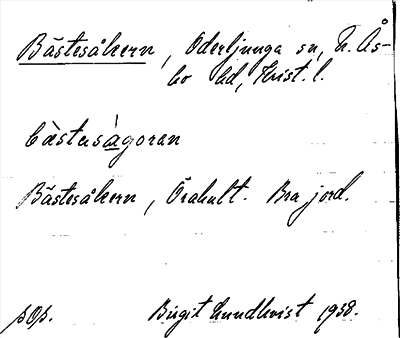 Bästesåkern, Oderljunga sn, N. Ås-
bo hd, Krist. l.
bästersågoran
Bästesåkern, Örahult. Bra jord.
pop. Birgit Lundkvist 1938.